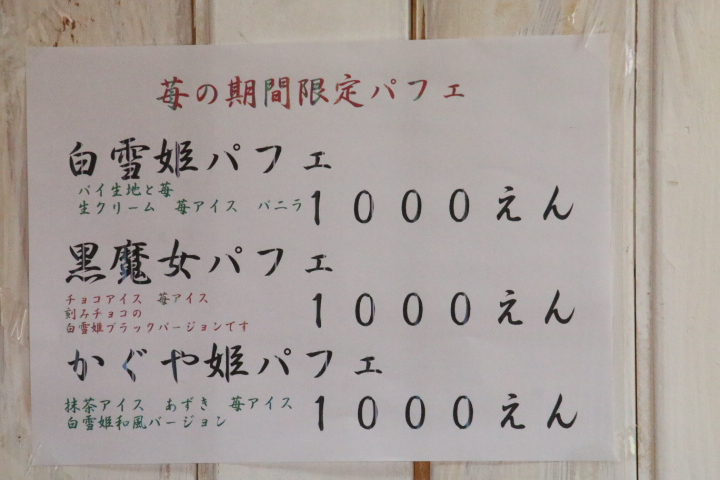 苺の期間限定パフェ
白雪姫パフェ
パイ生地と苺
生クリーム　苺アイス　バニラ
１０００えん
黒魔女パフェ
チョコアイス　苺アイス
刻みチョコの
白雪姫ブラックバージョンです
１０００えん
かぐや姫パフェ
抹茶アイス　あずき　苺アイス
白雪姫和風バージョン
１０００えん